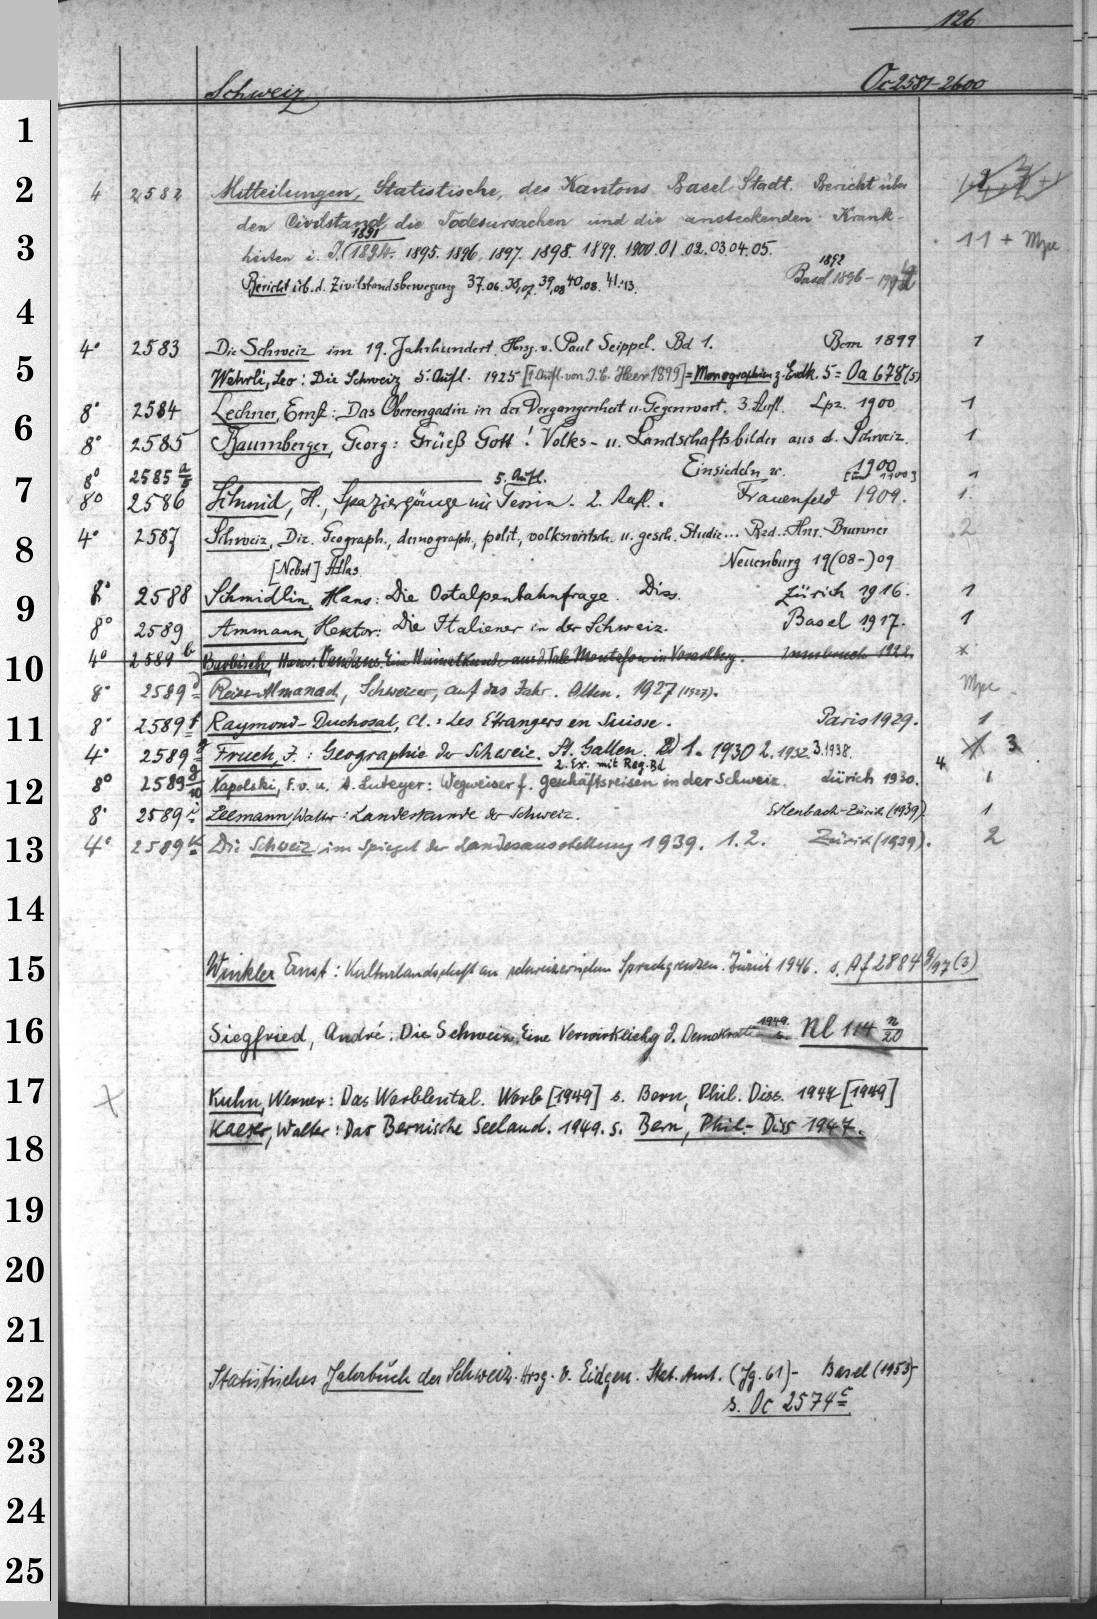 126
Schweiz Oc 2581-2600
1
2
3
4
5
6
7
8
9
10
11
12
13
14
15
16
17
18
19
20
21
22
23
24
25
4 2582 Mitteilungen, Statistische, des Kantons Basel Stadt. Bericht über
den Civilstand, die Todesursachen und die ansteckenden Krank-
1891
heiten i. J. (1894. 1895. 1896. 1897. 1898. 1899. 1900. 01. 02. 03. 04. 05. 11 + Mpe
1892
Bericht üb. d. Zivilstandsbewegung 37.06. 38,07. 39,08 40,08. 41.13. Basel 1896-
4° 2583 Die Schweiz im 19. Jahrhundert. Hrsg. v. Paul Seippel. Bd 1. Bern 1899 1
Wehrli, Leo: Die Schweiz 5. Aufl. 1925 [1. Aufl. von J. C. Heer 1899] = Monographien z. Erdk. 5 = Oa 678 (5)
8° 2584 Lechner, Ernst: Das Oberengadin in der Vergangenheit u. Gegenwart. 3. Aufl. Lpz. 1900 1
8° 2585 Baumberger, Georg: Grüeß Gott! Volks- u. Landschaftsbilder aus d. Schweiz. 1
Einsiedeln etc. 1900
8° 2585 a/5 5. Aufl. 1
8° 2586 Schmid, H., Spaziergänge im Tessin. 2. Aufl. Frauenfeld 1909. 1.
4° 2587 Schweiz, Die. Geograph., demograph., polit., volkswirtsch. u. gesch. Studie... Red.: Hnr. Brunner 2
[Nebst] Atlas. Neuenburg 19(08-)09
8° 2588 Schmidlin, Hans: Die Ostalpenbahnfrage. Diss. Zürich 1916. 1
8° 2589 Ammann, Hektor: Die Italiener in der Schweiz. Basel 1917. 1
4° 2589 b Barbisch, Hans: Vandans. Eine Heimatkunde aus d. Tale Montafon in Vorarlberg. Innsbruck 1922. x
8° 2589 d Reise-Almanach, Schweizer, auf das Jahr. Olten. 1927 (1927). Mpe
8° 2589 f Raymond-Duchosal, Cl.: Les Etrangers en Suisse. Paris 1929. 1
4° 2589 g Frueh, J.: Geographie der Schweiz. St. Gallen. Bd 1. 1930 2. 1932. 3. 1938. 3
2. Ex. mit Reg. Bd 4
8° 2589 g/10 Kapolski, F. v. u. A. Luteyer: Wegweiser f. Geschäftsreisen in der Schweiz. Zürich 1930. 1
8° 2589 i Leemann, Walter: Landeskunde der Schweiz. Erlenbach-Zürich (1939). 1
4° 2589 k Die Schweiz im Spiegel der Landesausstellung 1939. 1. 2. Zürich (1939). 2
Winkler Ernst: Kulturlandschaft an schweizerischen Sprachgrenzen. Zürich 1946. s. Af 2884 g/97 (3)
Siegfried, André: Die Schweiz. Eine Verwirklichg d. Demokratie 1949. s. Nl 114 n/20
Kuhn, Werner: Das Worblental. Worb [1949] s. Bern, Phil. Diss. 1947 [1949]
Kaeser, Walter: Das Bernische Seeland. 1949. s. Bern, Phil.- Diss 1947.
Statistisches Jahrbuch der Schweiz. Hrsg. v. Eidgen. Stat. Amt. (Jg. 61)- Basel (1953)-
s. Oc 2574 c